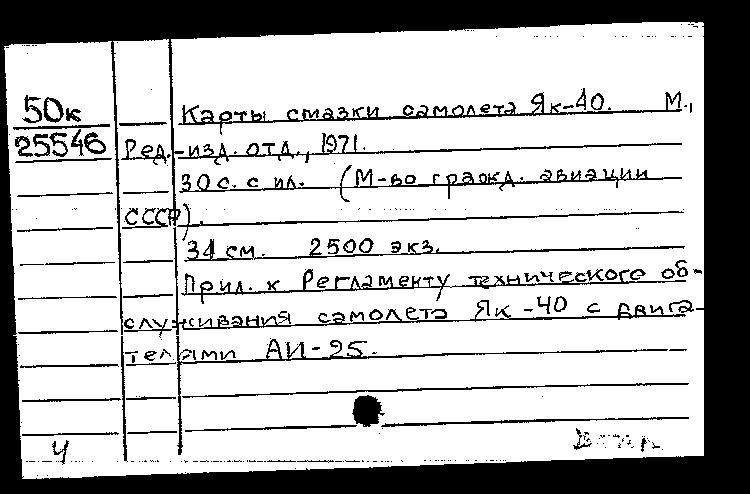 50к Карты смазки самолета Як-40. М.,
25546 Ред.-изд. отд., 1971.
30 с. с ил. (М-во гражд. авиации
СССР).
34 см. 2500 экз.
Прил. к Регламенту технического об-
служивания самолета Як-40 с двига-
телями АИ-25.
Ч